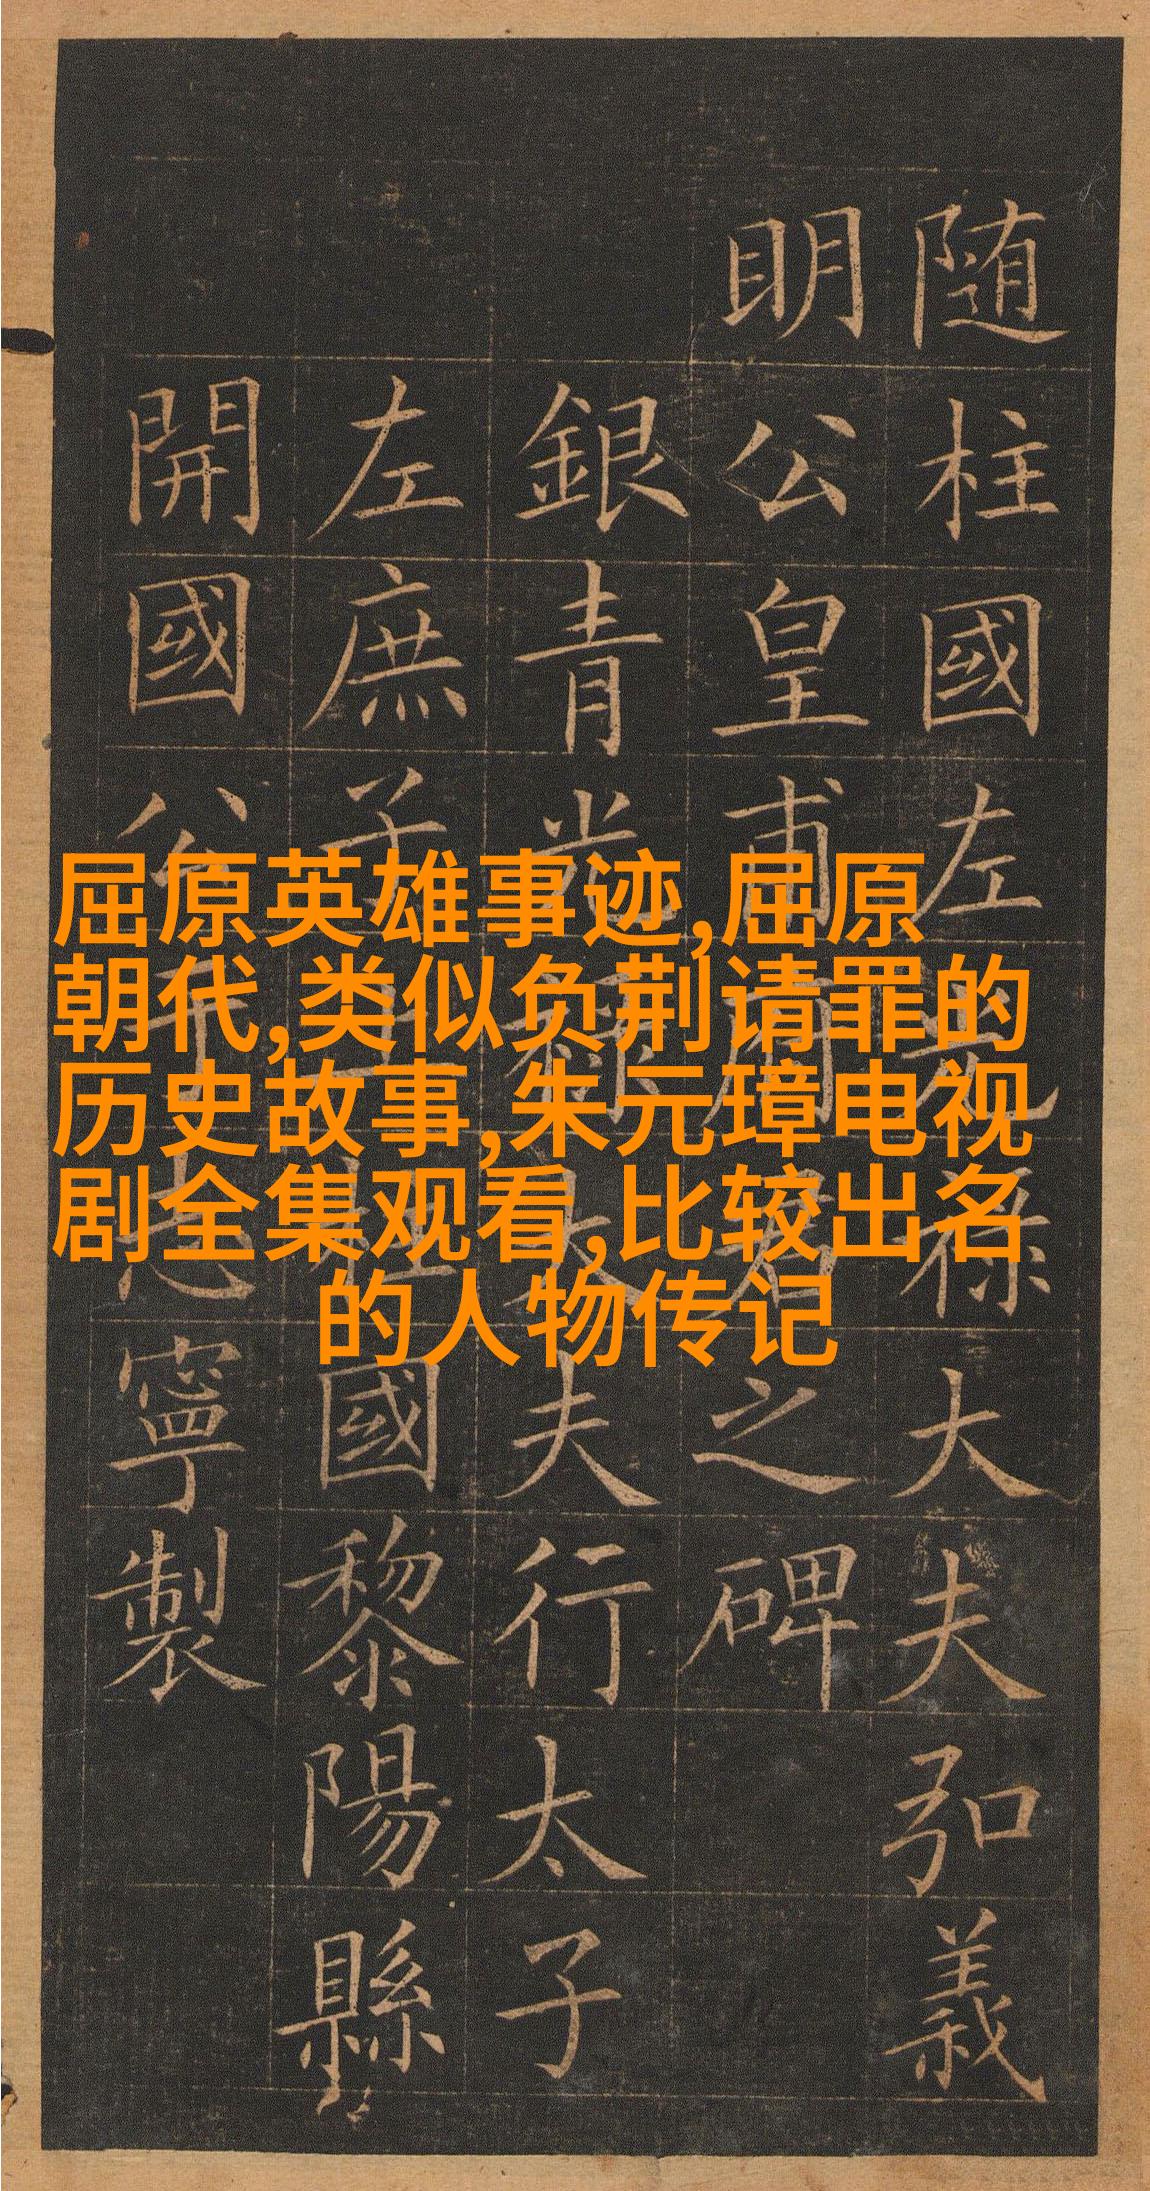 屈原英雄事迹,屈原
朝代,类似负荆请罪的
历史故事,朱元璋电视
剧全集观看,比较出名
的人物传记
随柱國左光禄大夫弘義
明公皇甫府君之碑
銀青光禄大夫行太子
左庶子上柱國黎陽縣
開國公于志寧製